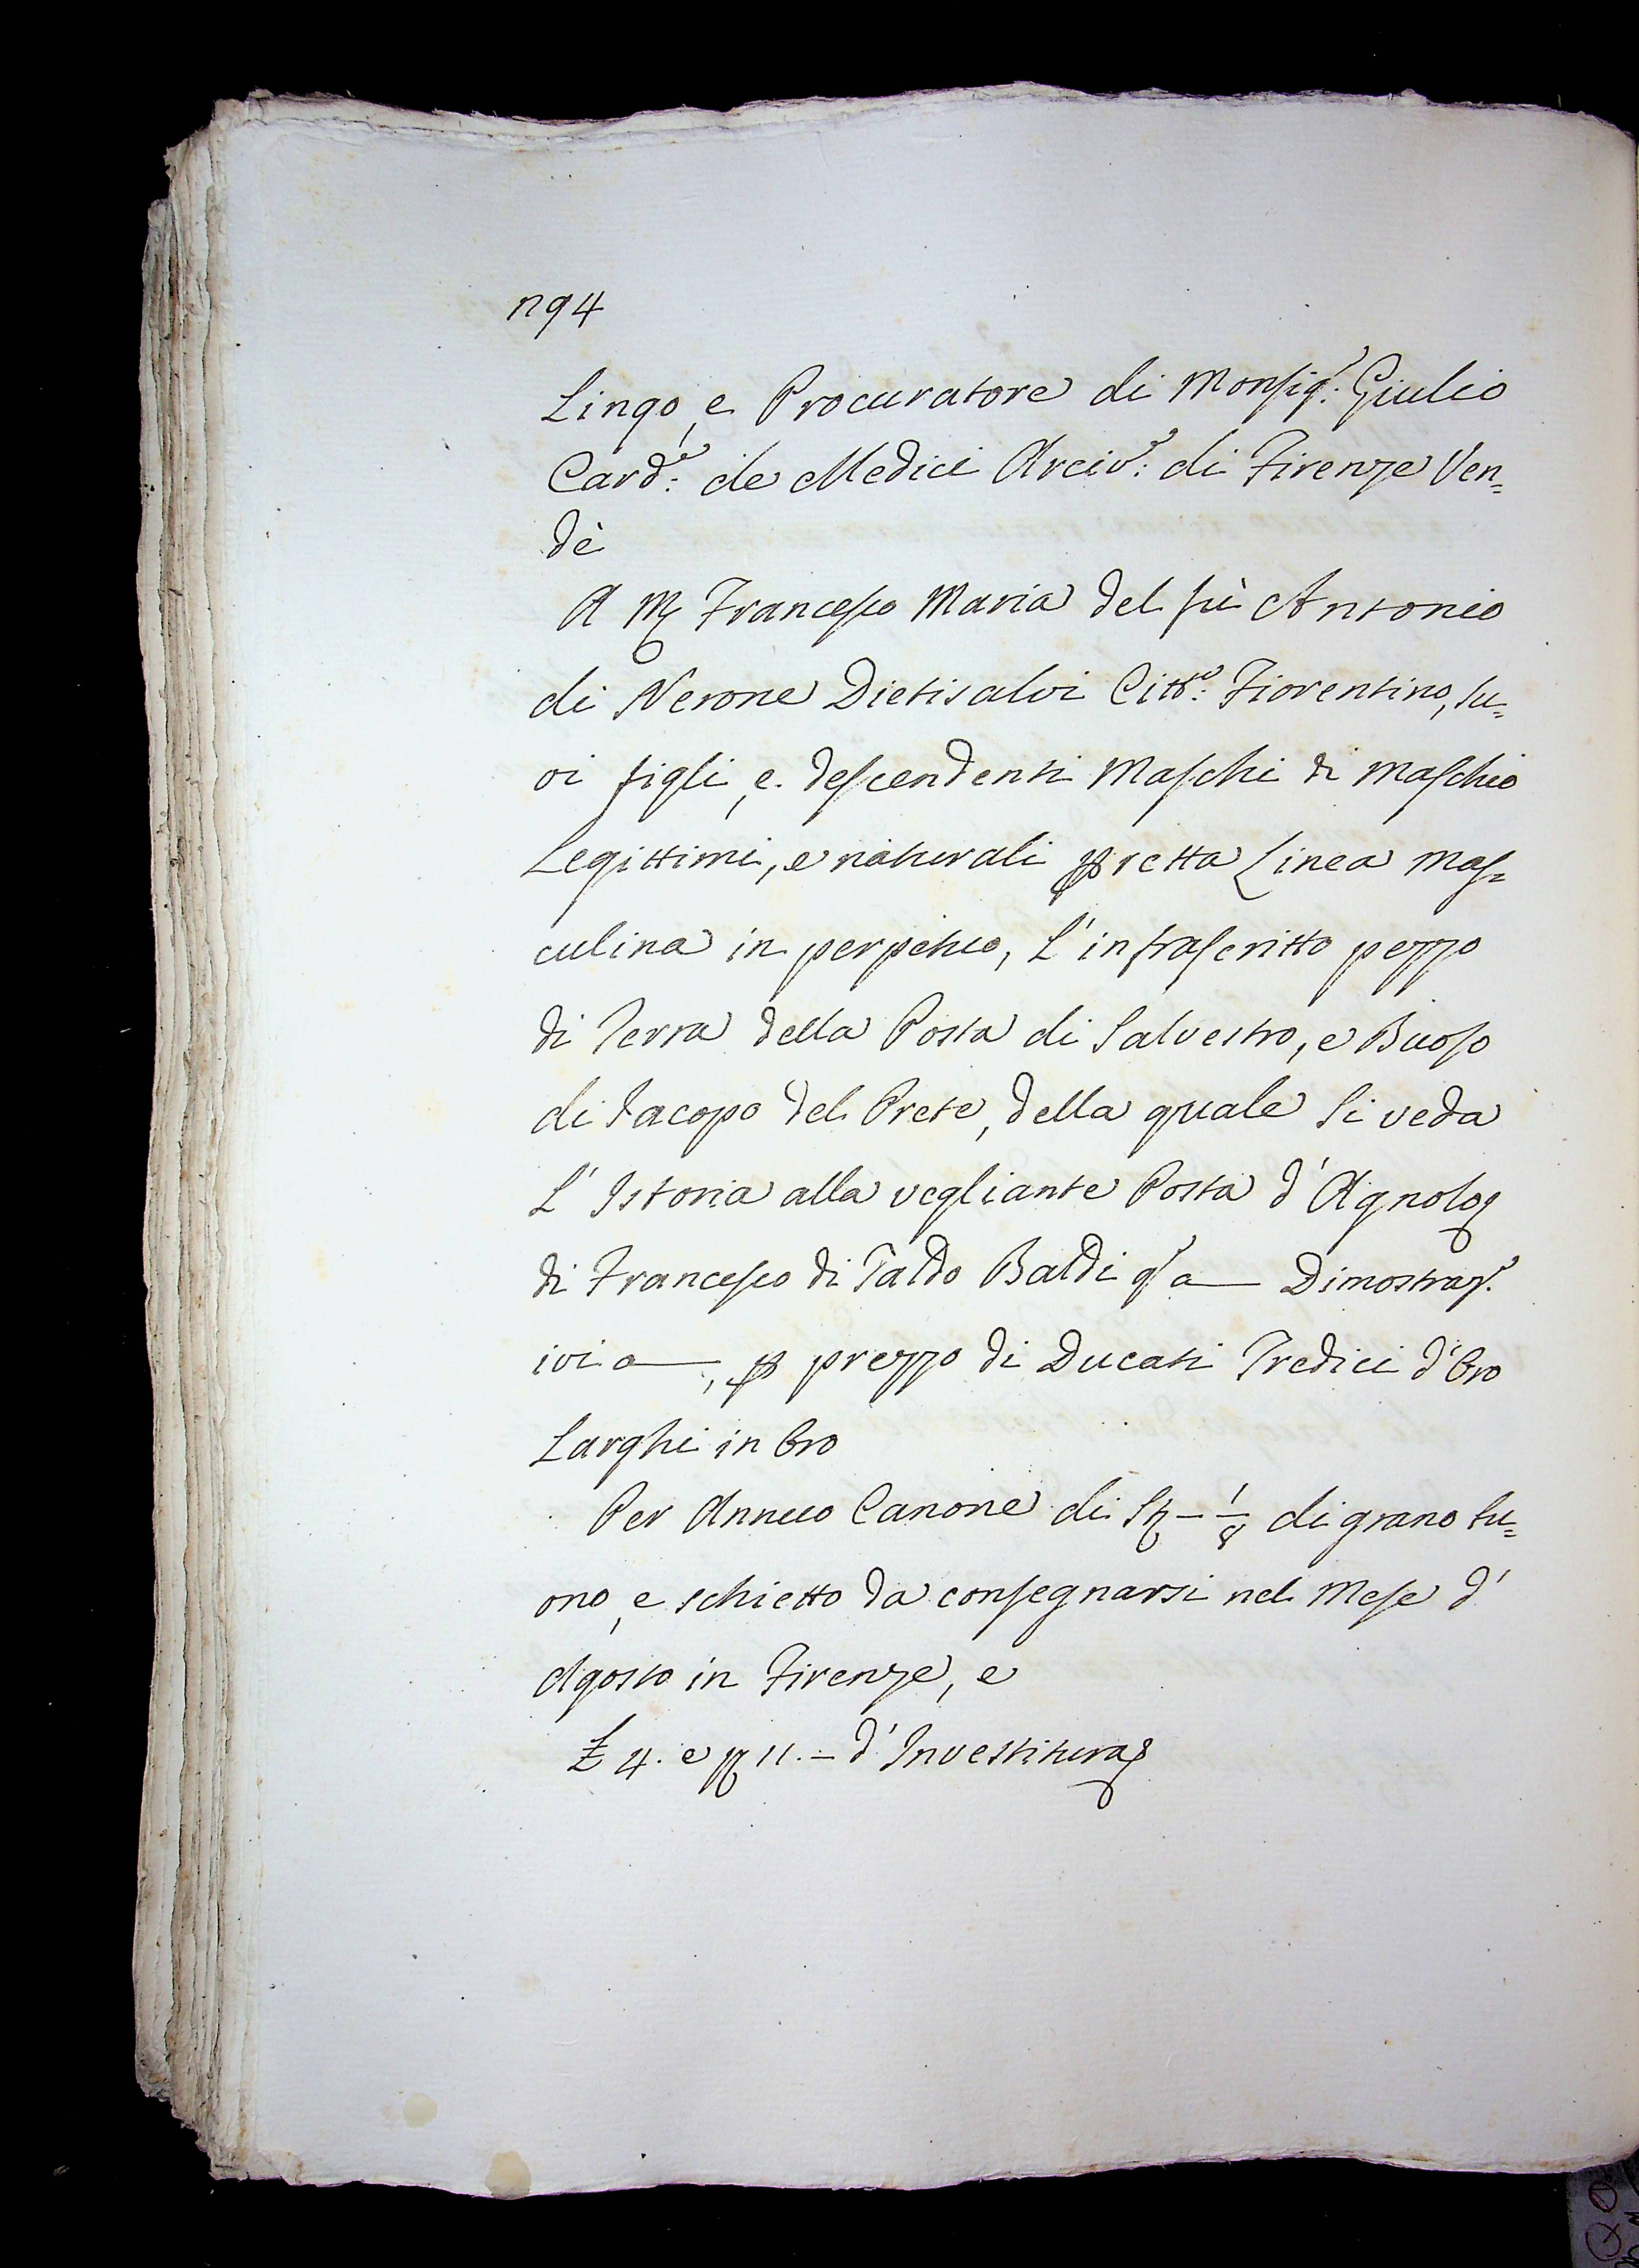 n94
Lingo, e Procuratore di Monsig.r Giulio
Card.e de Medici Arciv.o di Firenze Ven=
dè
A M Francesco Maria del fù Antonio
di Nerone Dietisalvi Citt.o Fiorentino, su=
oi figli, e descendenti Maschi di Maschio
Legittimi, e naturali p retta Linea Mas=
culina in perpetuo, L'infrascritto pezzo
di Terra della Posta di Salvestro, e Buoso
di Iacopo del Prete, della quale si veda
L'Istoria alla vegliante Posta d'Agnolo
di Francesco di Taldo Baldi q a — Dimostraz.e
ivi a —, p prezzo di Ducati Tredici d'Oro
Larghi in Oro
Per Annuo Canone di St — 1/8 di grano bu=
ono, e schietto da consegnarsi nel Mese d'
Agosto in Firenze, e
£ 4. e p 11. — d'Investitura